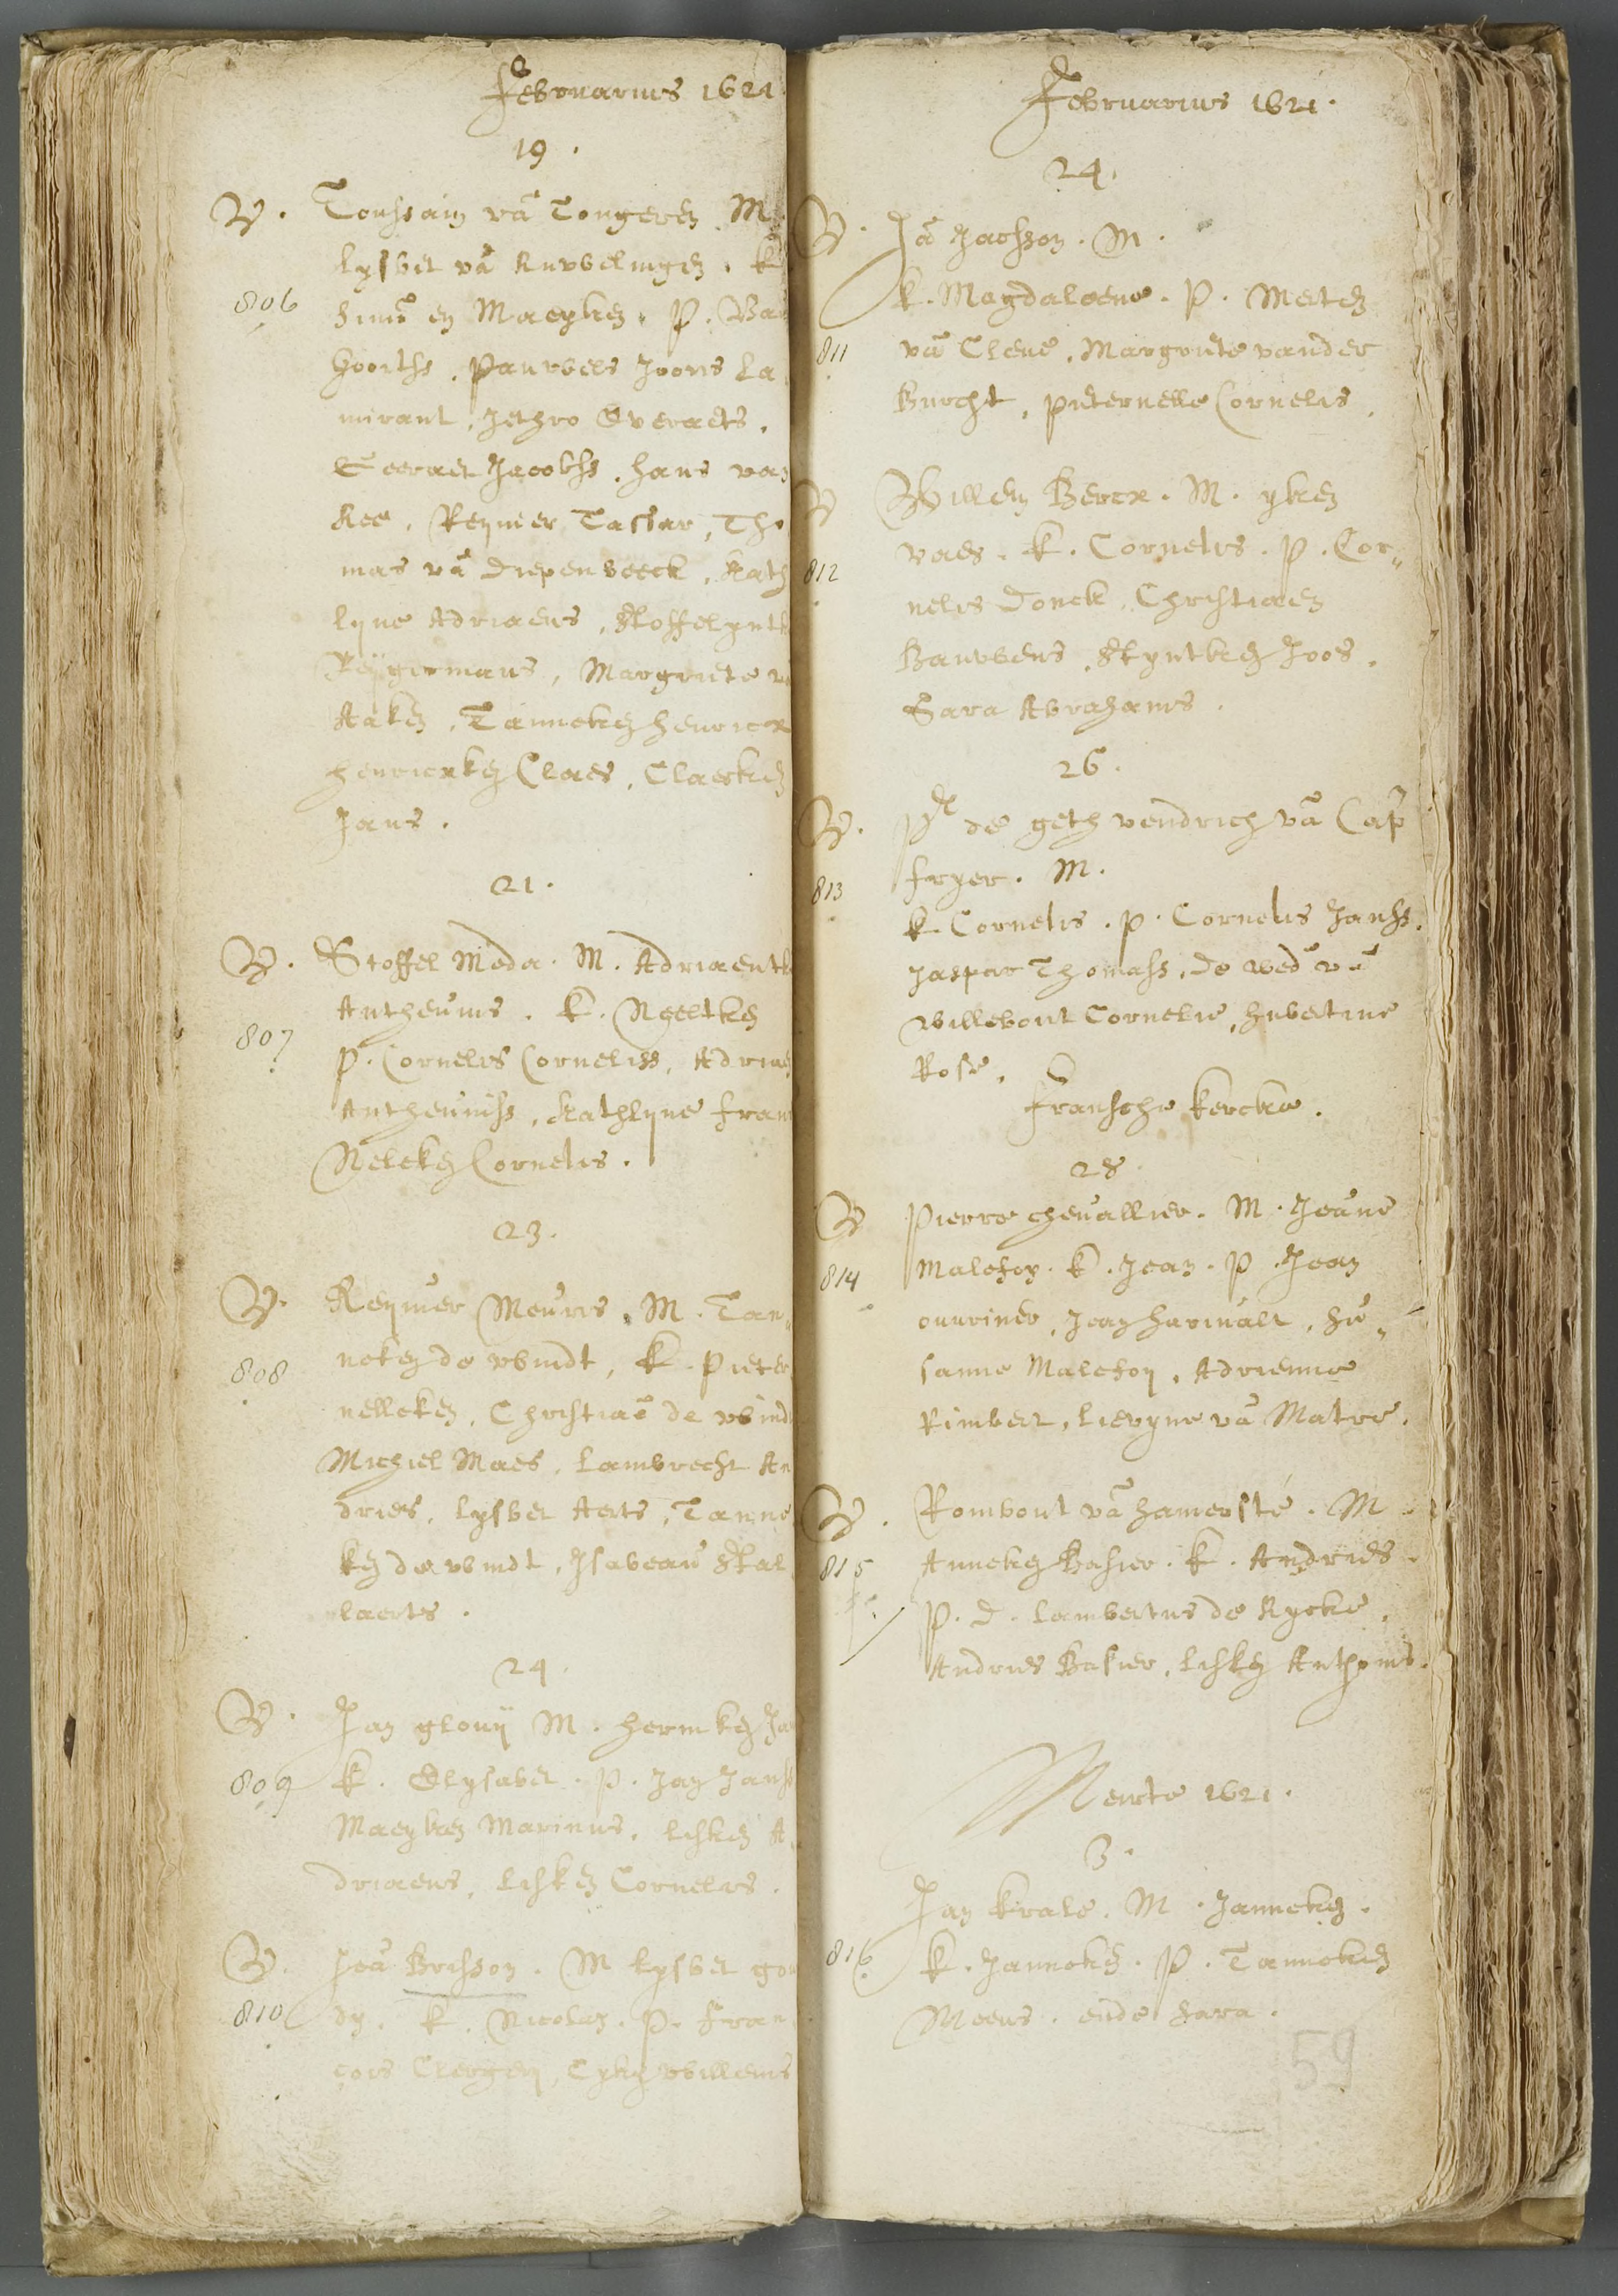 Februarius 1621.
19.
V. Toussain vā Tongeren. M.
Lysbet vā Ruwelingen. K
806 Simō en Maeyken. P.
Joorihs. Pauwels Jooris La
mirant, Jethro Everaets,
Geeraet Jacobss. Hans van
Ree, Reynier Tassar, Tho
mas vā Diepenbeeck, Kath
lyne Adriaens, Stoffelyntk
Reÿgermans, Margriete v
Aaken, Tanneken Henricx
Henricxken Claes, Claerken
Jans.
21.
V. Stoffel Meda. M. Adriaentk
Antheunis. K. Neeltken
807 P. Cornelis Corneliss, Adriaen
Antheuniss, Kathlyne Fran
Neleken Cornelis.
23.
V. Reynier Meuris. M. Tan„
808 neken de Windt, K. Pieter
nelleken, Christiaē de Wind
Michiel Maes, Lambrecht An
dries, Lysbet Aerts, Tanne
ken de Windt, Isabeau Stal
laerts.
24.
V. Jan Glouij M. Hermken Ja
809 K. Elysabet. P. Jan Janss
Maeyken Marinus. Lisken A
driaens, Lisken Cornelis.
V. Jeā Brisson. M Lysbet go
810 dy. K. Nicolas. P. Fran
cois Clergen, Cyken Willems
Februarius 1621.
24.
V. Jā Jacsson. M.
K. Magdaleene. P. Merten
811 vā Cleve, Margriete vander
Burcht, Pieternelle Cornelis,
V Willem Berex. M. yken
812 Vaes. K. Cornelis. P. Cor„
nelis Donck, Christiaen
Bauwens, Styntken Joos,
Sara Abrahams.
26.
V. Pr de geth vendrich vā Cap
813 Fryer. M.
K. Cornelis. P. Cornelis Janss.
Jaspar Thomass, de wed vā
Willebout Cornelie, Hubertine
Rose.
Fransche Kercke.
28.
V Pierre Chevallier. M. Jeāne
814 Malefoy. K. Jean. P. Jean
ouvrines, Jean Harivalt, Su„
sanne Malefoy, Adrienne
Rimbert, Lievyne vā Matre.
V. Rombout vā Hamerstē. M
815 Anneken Basier. K. Andries.
P. D. Lambertus de Rycke,
Andries Basier, Lisken Anthonis.
Meerte 1621.
3.
Jan Krale. M. Janneken.
816 K. Janneken. P. Tanneken
Meeus. ende Sara.
59